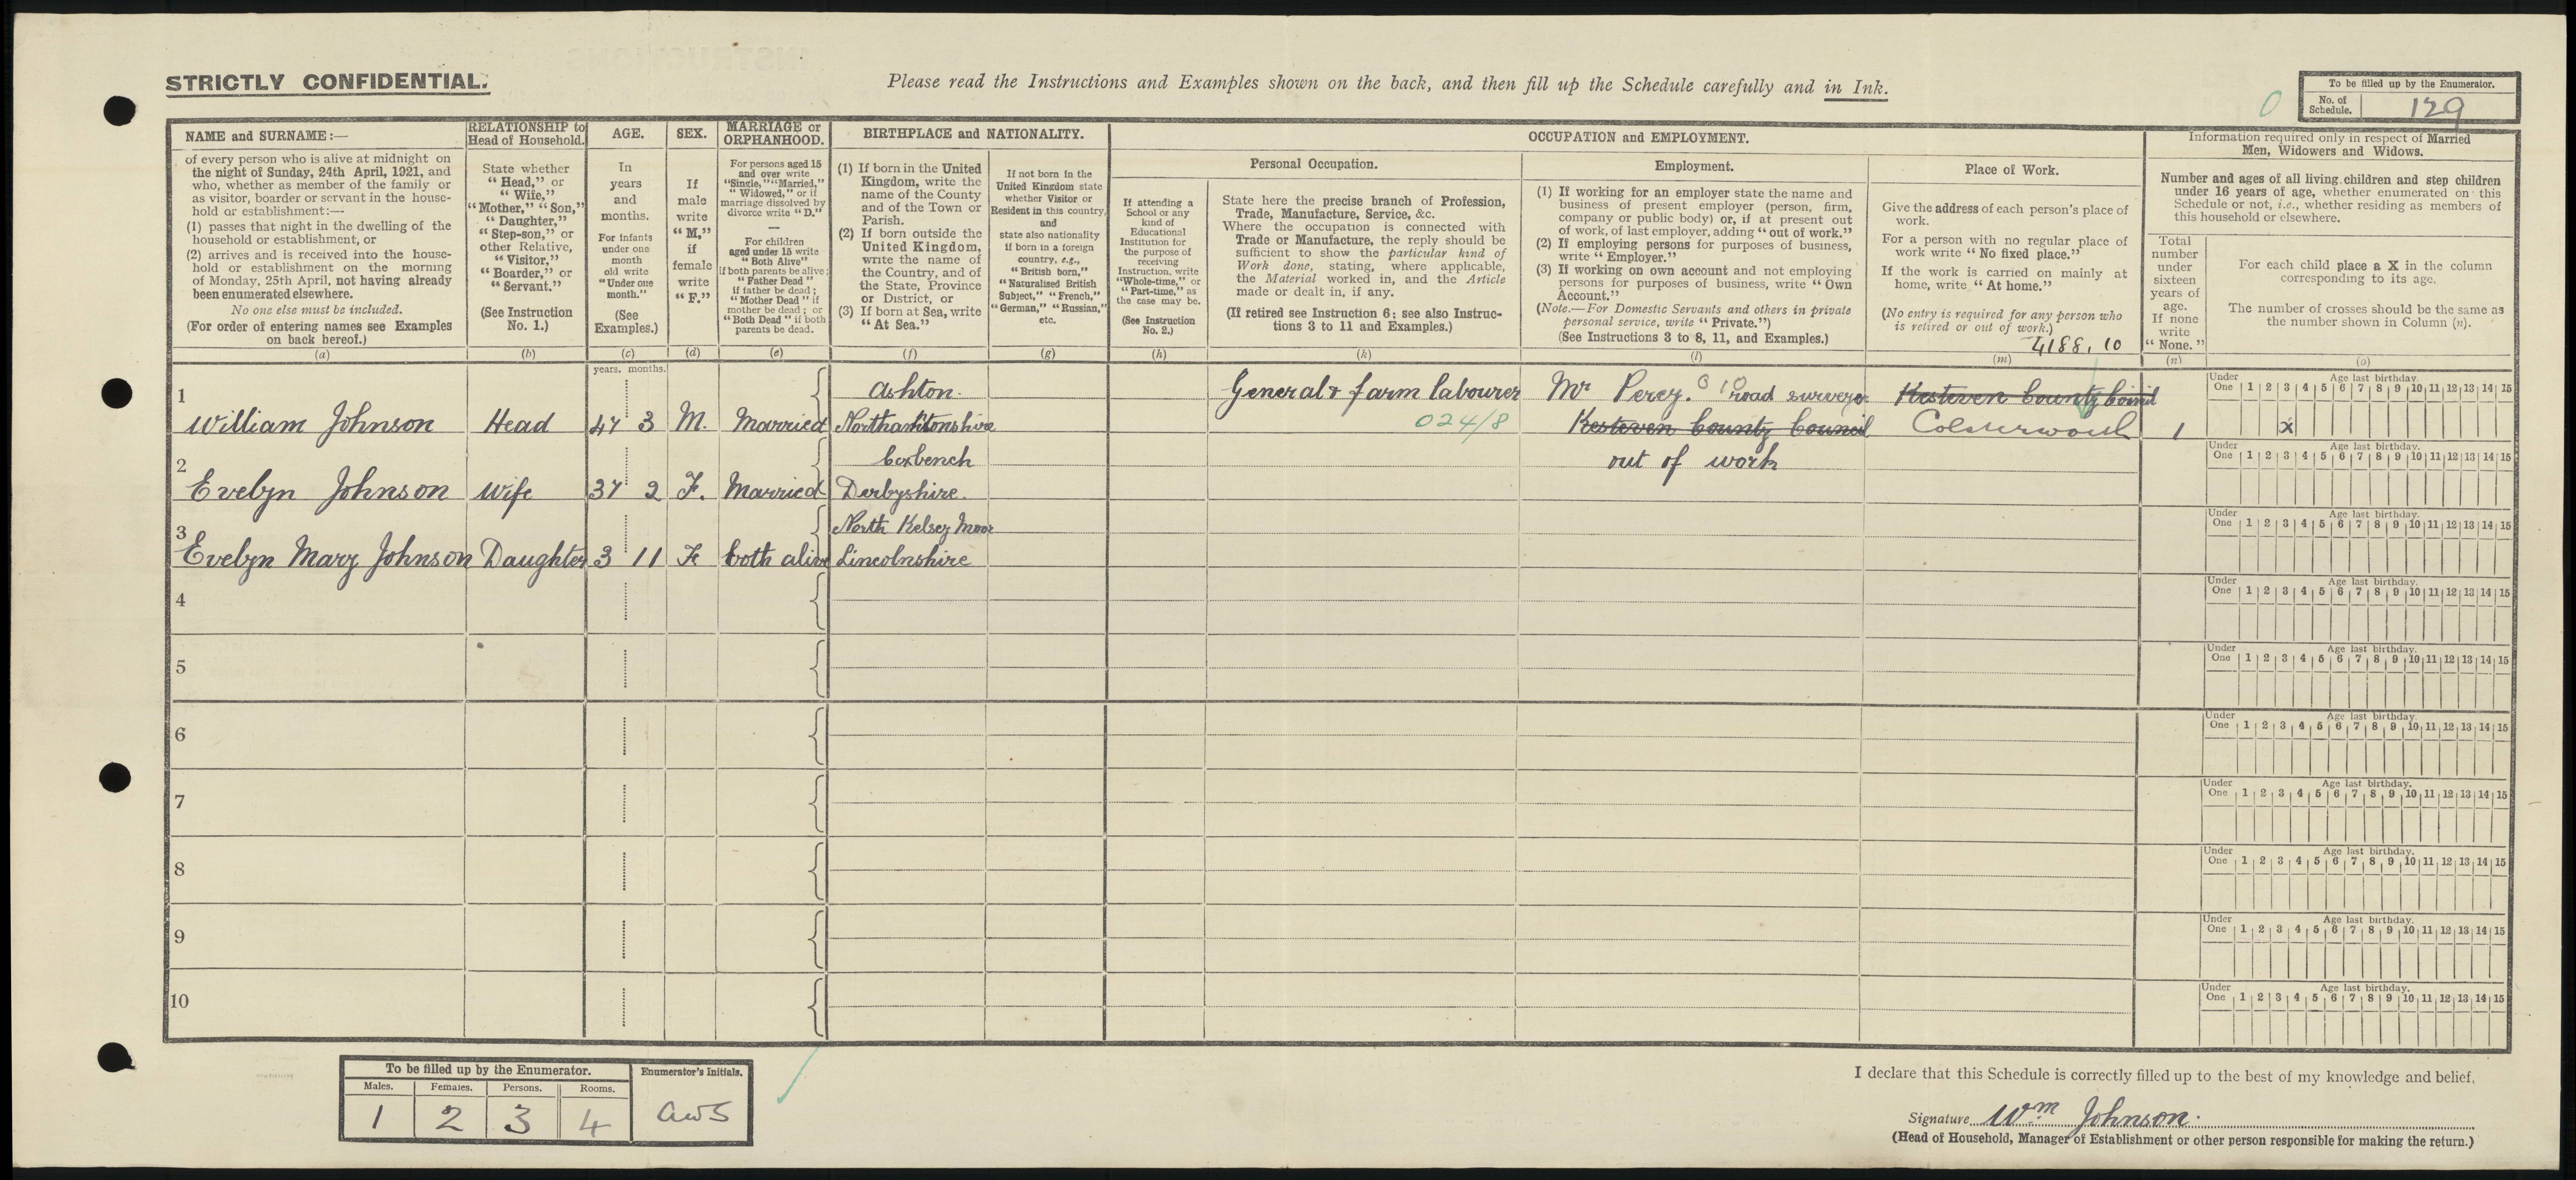 STRICTLY CONFIDENTIAL.
Please read the Instructions and Examples shown on the back, and then fill up the Schedule carefully and in Ink.
To be filled up by the Enumerator.
No. of Schedule. 129
0
NAME and SURNAME:—
of every person who is alive at midnight on
the night of Sunday, 24th April, 1921, and
who, whether as member of the family or
as visitor, boarder or servant in the house-
hold or establishment:—
(1) passes that night in the dwelling of the
household or establishment, or
(2) arrives and is received into the house-
hold or establishment on the morning
of Monday, 25th April, not having already
been enumerated elsewhere.
No one else must be included.
(For order of entering names see Examples
on back hereof.)
(a)
RELATIONSHIP to
Head of Household.
State whether
"Head," or
"Wife,"
"Mother," "Son,"
"Daughter,"
"Step-son," or
other Relative,
"Visitor,"
"Boarder," or
"Servant."
(See Instruction
No. 1.)
(b)
AGE.
In
years
and
months.
For infants
under one
month
old write
"Under one
month."
(See
Examples.)
(c)
SEX.
If
male
write
"M,"
if
female
write
"F."
(d)
MARRIAGE or
ORPHANHOOD.
For persons aged 15
and over write
"Single," "Married,"
"Widowed," or if
marriage dissolved by
divorce write "D."
—
For children
aged under 15 write
"Both Alive"
if both parents be alive;
"Father Dead"
if father be dead;
"Mother Dead" if
mother be dead; or
"Both Dead" if both
parents be dead.
(e)
BIRTHPLACE and NATIONALITY.
(1) If born in the United
Kingdom, write the
name of the County
and of the Town or
Parish.
(2) If born outside the
United Kingdom,
write the name of
the Country, and of
the State, Province
or District, or
(3) If born at Sea, write
"At Sea."
(f)
If not born in the
United Kingdom state
whether Visitor or
Resident in this country,
and
state also nationality
if born in a foreign
country, e.g.,
"British born,"
"Naturalised British
Subject," "French,"
"German," "Russian,"
etc.
(g)
OCCUPATION and EMPLOYMENT.
If attending a
School or any
kind of
Educational
Institution for
the purpose of
receiving
Instruction, write
"Whole-time," or
"Part-time," as
the case may be.
(See Instruction
No. 2.)
(h)
Personal Occupation.
State here the precise branch of Profession,
Trade, Manufacture, Service, &c.
Where the occupation is connected with
Trade or Manufacture, the reply should be
sufficient to show the particular kind of
Work done, stating, where applicable,
the Material worked in, and the Article
made or dealt in, if any.
(If retired see Instruction 6; see also Instruc-
tions 3 to 11 and Examples.)
(k)
Employment.
(1) If working for an employer state the name and
business of present employer (person, firm,
company or public body) or, if at present out
of work, of last employer, adding "out of work."
(2) If employing persons for purposes of business,
write "Employer."
(3) If working on own account and not employing
persons for purposes of business, write "Own
Account."
(Note.—For Domestic Servants and others in private
personal service, write "Private.")
(See Instructions 3 to 8, 11, and Examples.)
(l)
Place of Work.
Give the address of each person's place of
work.
For a person with no regular place of
work write "No fixed place."
If the work is carried on mainly at
home, write "At home."
(No entry is required for any person who
is retired or out of work.)
4188.10
(m)
Information required only in respect of Married
Men, Widowers and Widows.
Number and ages of all living children and step children
under 16 years of age, whether enumerated on this
Schedule or not, i.e., whether residing as members of
this household or elsewhere.
Total
number
under
sixteen
years of
age.
If none
write
"None."
(n)
For each child place a X in the column
corresponding to its age.
The number of crosses should be the same as
the number shown in Column (n).
(o)
years. months.
Under One Age last birthday. 1 2 3 4 5 6 7 8 9 10 11 12 13 14 15
1
Ashton. General & farm labourer Mr Percy. 010 road surveyor Kesteven County Council
William Johnson Head 47 3 M. Married Northamtonshire 024/8 Kesteven County Council Colsterworth 1 x
Under One Age last birthday. 1 2 3 4 5 6 7 8 9 10 11 12 13 14 15
2
Coxbench out of work
Evelyn Johnson Wife 37 2 F. Married Derbyshire.
Under One Age last birthday. 1 2 3 4 5 6 7 8 9 10 11 12 13 14 15
3
North Kelsey Moor
Evelyn Mary Johnson Daughter 3 11 F both alive Lincolnshire
Under One Age last birthday. 1 2 3 4 5 6 7 8 9 10 11 12 13 14 15
4
Under One Age last birthday. 1 2 3 4 5 6 7 8 9 10 11 12 13 14 15
5
Under One Age last birthday. 1 2 3 4 5 6 7 8 9 10 11 12 13 14 15
6
Under One Age last birthday. 1 2 3 4 5 6 7 8 9 10 11 12 13 14 15
7
Under One Age last birthday. 1 2 3 4 5 6 7 8 9 10 11 12 13 14 15
8
Under One Age last birthday. 1 2 3 4 5 6 7 8 9 10 11 12 13 14 15
9
Under One Age last birthday. 1 2 3 4 5 6 7 8 9 10 11 12 13 14 15
10
To be filled up by the Enumerator.
Males. Females. Persons. Rooms.
1 2 3 4
Enumerator's Initials.
AWS
I declare that this Schedule is correctly filled up to the best of my knowledge and belief.
Signature Wm Johnson.
(Head of Household, Manager of Establishment or other person responsible for making the return.)